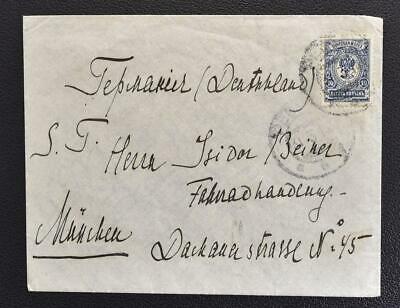 Германія (Deutschland)
S. T. Herrn Isidor Beiner
Fahrradhandlung
München Dachauerstrasse No. 45